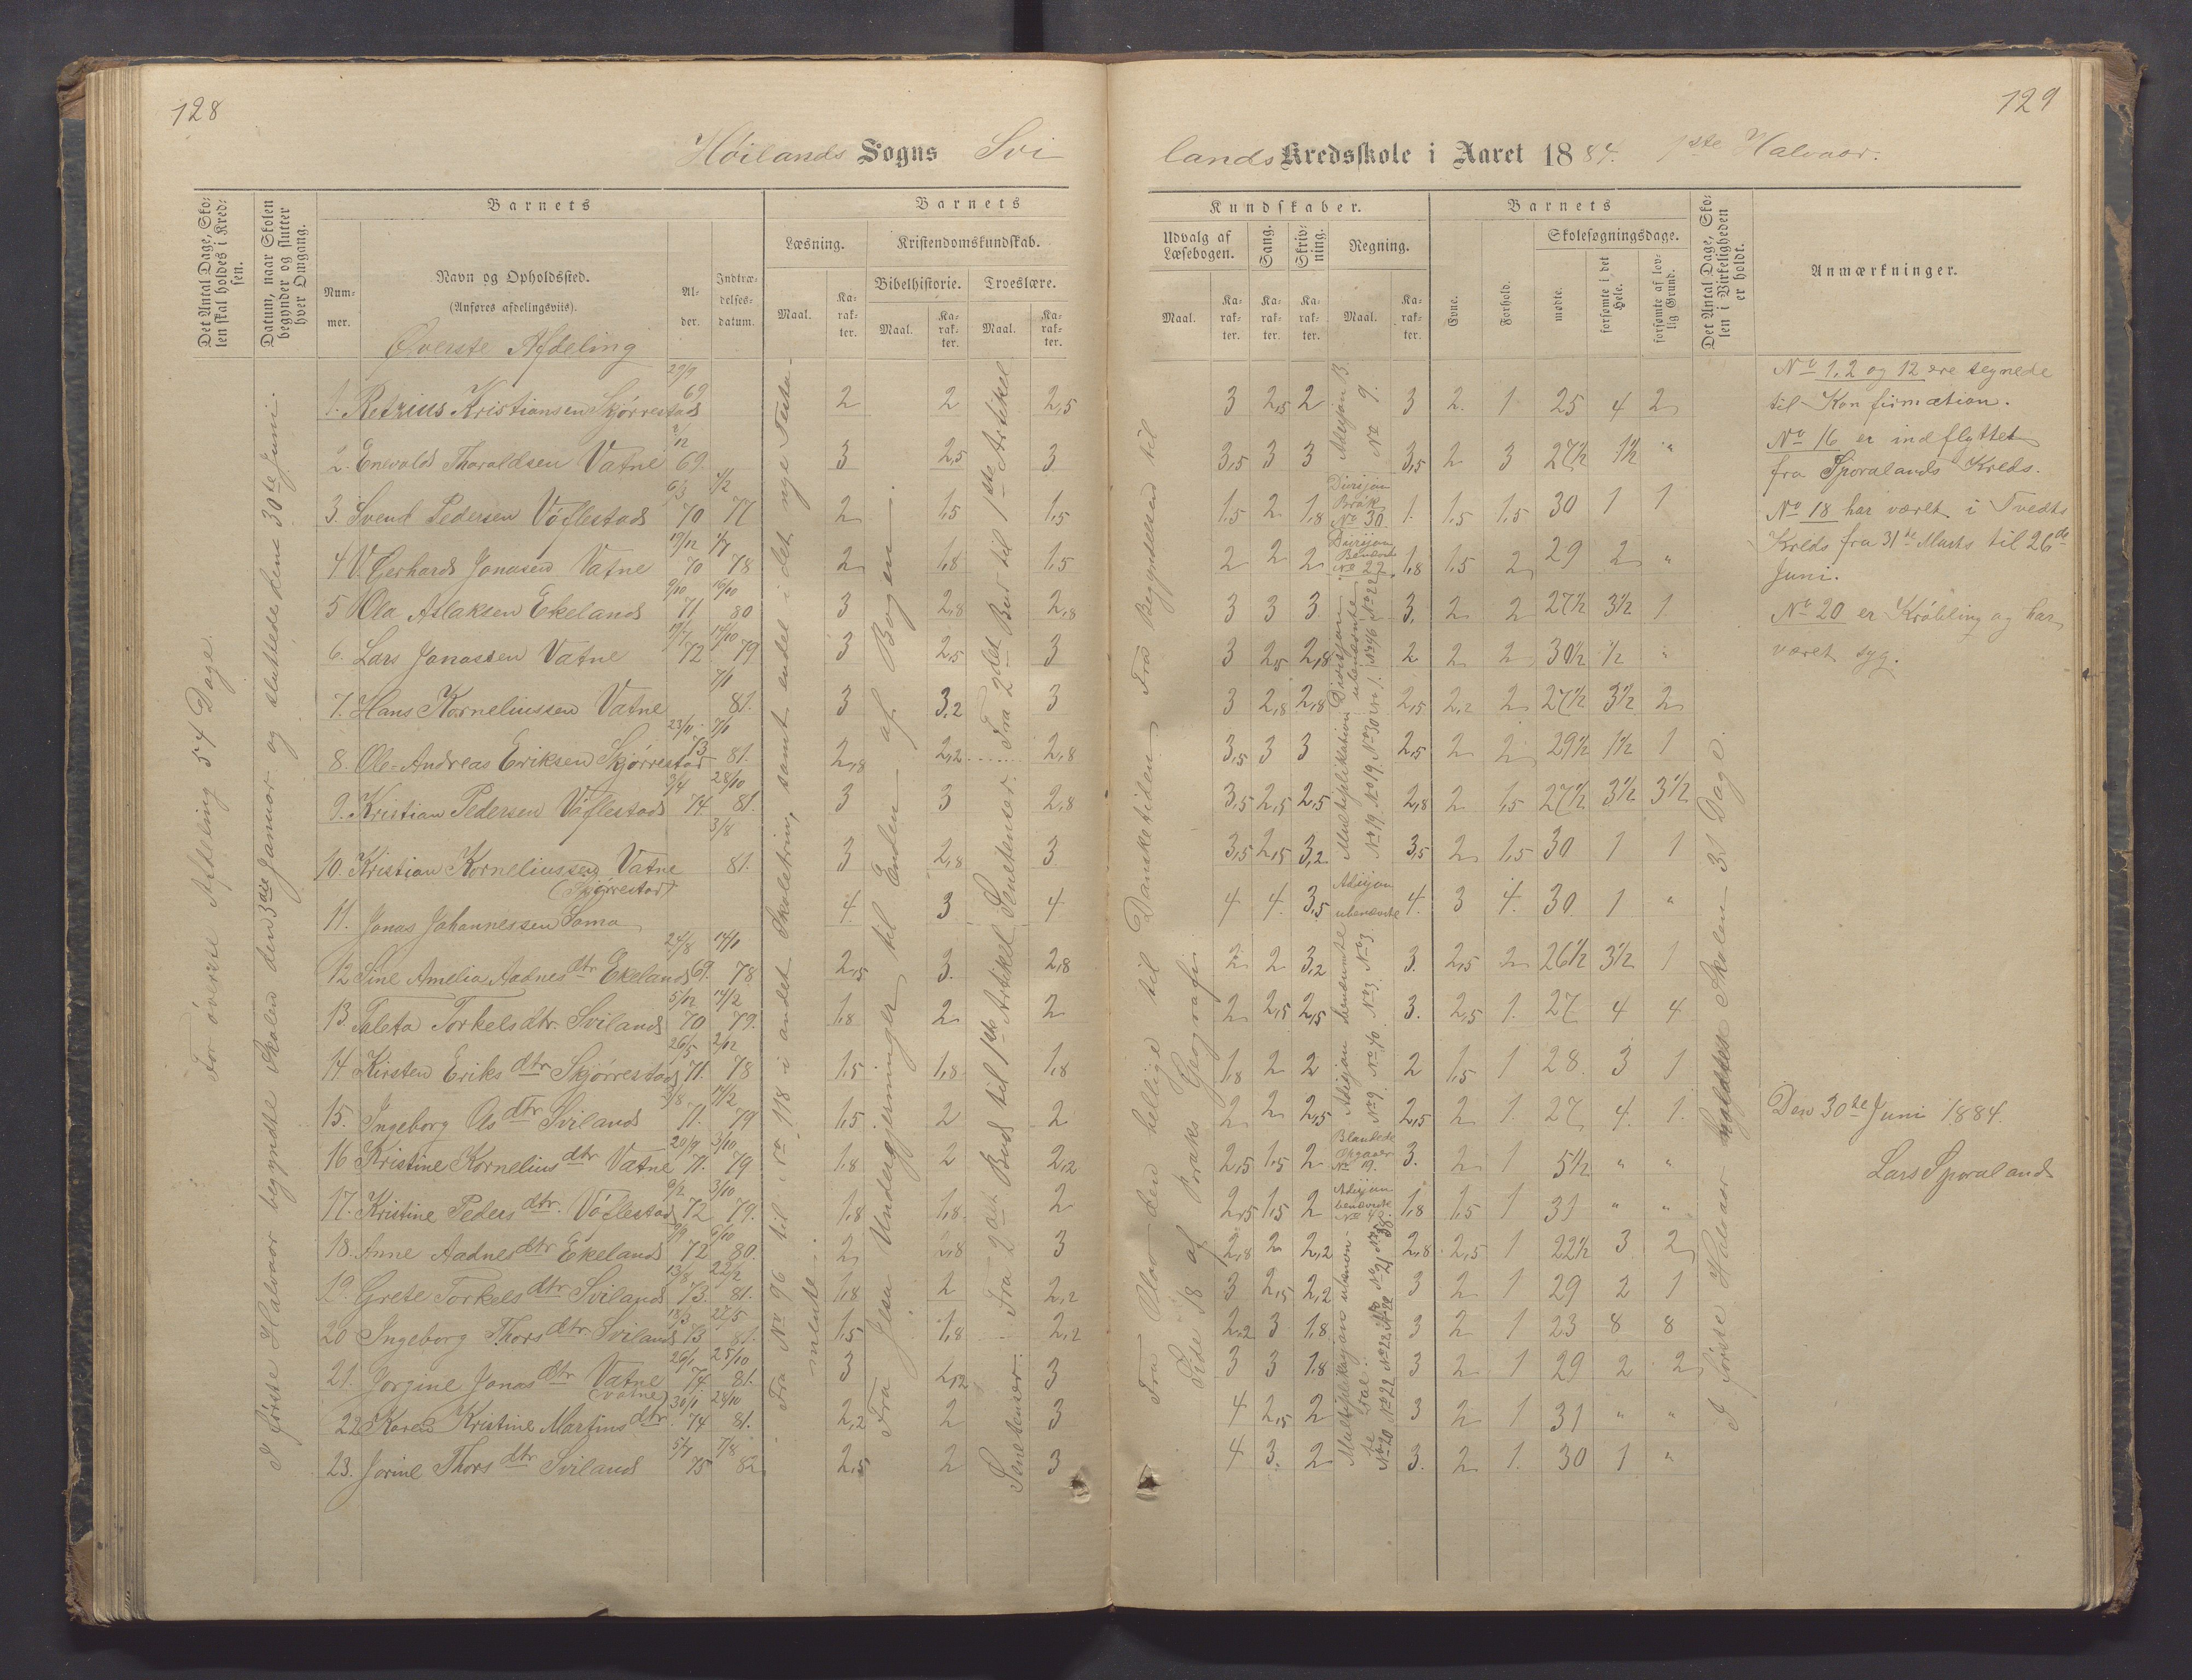 128
129
Høilands Sogns Svi
lands Kredsskole i Aaret 1884. 1ste Halvaar.
Det Antal Dage, Sko-
len skal holdes i Kred-
sen.
Datum, naar Skolen
begynder og slutter
hver Omgang.
Barnets
Num-
mer.
Navn og Opholdssted.
(Anføres afdelingsviis).
Al-
der.
Indtræ-
delses-
datum.
Barnets
Læsning.
Maal.
Ka-
rak-
ter.
Kristendomskundskab.
Bibelhistorie.
Troeslære.
Maal.
Ka-
rak-
ter.
Maal.
Ka-
rak-
ter.
Kundskaber.
Udvalg af
Læsebogen.
Maal.
Ka-
rak-
ter.
Sang.
Ka-
rak-
ter.
Skriv-
ning.
Ka-
rak-
ter.
Regning.
Maal.
Ka-
rak-
ter.
Barnets
Evne.
Forhold.
Skolesøgningsdage.
mødte.
forsømte i det
Hele.
forsømte af lov-
lig Grund.
Det Antal Dage, Sko-
len i Virkeligheden
er holdt.
Anmærkninger.
Øverste Afdeling
For øverste Afdeling 54 Dage.
I første Halvaar begyndte Skolen den 3die Januar og sluttede den 30te Juni.
Fra No 96 til No 118 i andet Skoletrin, samt endel i det nye Testa-
mente.
Fra Jesu Undergjerninger til Enden af Bogen.
Fra 2det Bud til 1ste Artikel
Sentenser.
Fra 2det Bud til 1ste Artikel
Sentenser.
Fra Olav den hellige til Dansketiden. Fra Begyndelsen til
Side 18 af Geografi.
1. Retzius Kristiansen Skjørrestad 29/9 69 2 2 2,5 3 2,5 2 Adisjon B. No 9. 3 2. 1 25 4 2
2. Enevald Tharaldsen Vatne 2/12 69. 3 2,5 3 3,5 3 3 3,5 2 3 27½ 1½ "
3. Svend Pedersen Vølestad 6/3 70 1/2 77 2 1,5 1,5 1,5 2 1,8 Divisjon Brøk No 30 1. 1,5 1,5 30 1 1
4. V. Gerhard Jonasen Vatne 19/12 70 1/7 78 2 1,8 1,5 2 2 2 Divisjon Benævnte No 22 1,8 1,5 2 29 2 "
5 Ola Aslaksen Ekeland 9/10 71 16/10 80 3 2,8 2,8 3 3 3 3. 2 2 27½ 3½ 1
6. Lars Jonassen Vatne 19/7 72 17/10 79 3 2,5 3 3 2,5 2,8 2 2 2 30½ ½ "
7. Hans Korneliussen Vatne 7/1 81. 3 3,2 3 3 2,8 2,8 2,5 2,2 2 27½ 3½ 2
8. Ole Andreas Eriksen Skjørrestad 23/11 73 7/1 81. 2,8 2,2 2,8 3,5 3 3 2,5 2 2 29½ 1½ 1
9. Kristian Pedersen Vølestad 3/4 74 28/10 81. 3 3 2,8 3,5 2,5 2,5 2,8 2 1,5 27½ 3½ 3½
10. Kristian Korneliussen Vatne 3/8 81. 3 2,8 3 3,5 2,5 3,2 3,5 2 1,5 30 1 1
(Skjørrestad)
11. Jonas Johannessen Soma 4. 3 4 4 4. 3,5 Adisjon ubenævnte 4. 3 4. 30 1 "
12 Sine Amelia Aadnesdtr Ekeland 24/8 69. 14/1 78. 2,5 3. 2,8 2 2 3,2 3. 2,5 2 26½ 3½ 1
13. Taleta Torkelsdtr. Sviland 5/12 70 14/2 79. 1,8 2 2 2 2,5 2,5 3. 2,5 1. 27 4 4
14. Kirsten Eriksdtr Skjørrestad 26/5 71. 2/12 78 1,5 1,8 1,8 1,8 2 2 2 1,5 1 28. 3 1
15. Ingeborg Olsdtr Sviland 3/8 71. 17/2 79 1,5 2 2 2 2 2,5 2,5 2 1. 27 4. 1.
16 Kristine Korneliusdtr Vatne 20/9 71. 3/10 79 1,8 2 2,2 2,5 1,5 2 Blandede Opgaver No 19. 3. 2 1 5½ " "
17. Kristine Pedersdtr. Vølestad 9/2 72 3/10 79. 1,8 1,8 2 2,5 1,5 2 Adisjon benævnte No 48. 1,8 1,5 1 31 " "
18. Anne Aadnesdtr Ekeland 9/9 72 6/10 80. 2 2,8 3 2,8 2 2,2 2,8 2,5 1 22½ 3 2
19. Grete Torkelsdtr Sviland 13/8 73. 22/2 81. 1,8 2 2,2 3 2,5 2,2 3 2 1 29 2 1
20 Ingeborg Thorsdtr Sviland 18/3 73 27/5 81. 1,5 1,8 2,2 2,2 3 1,8 3 2 1 23 8 8
21. Jorgine Jonasdtr Vatne 26/1 74 25/10 81. 3 2,2 3 3 3 1,8 3 2 1 29 2 2
(Vatne)
22 Karen Kristine Martinsdtr 30/1 74 24/10 81. 2,2 2 3 4 2,5 2 3 2 1 31 " "
23. Jorine Thorsdtr Sviland 5/7 75 7/8 82 2,5 2 3 4 3. 2 3. 2 1. 30 1 "
I første Halvaar holdtes Skolen 31 Dage.
No 1, 2 og 12 ere tegnede
til Konfirmation.
No 16 er indflyttet
fra Sporalands Kreds.
No 18 har været i Tvedts
Kreds fra 31te Marts til 26de
Juni.
No 20 er Krøbling og har
været syg.
Den 30te Juni 1884.
Lars Sporaland